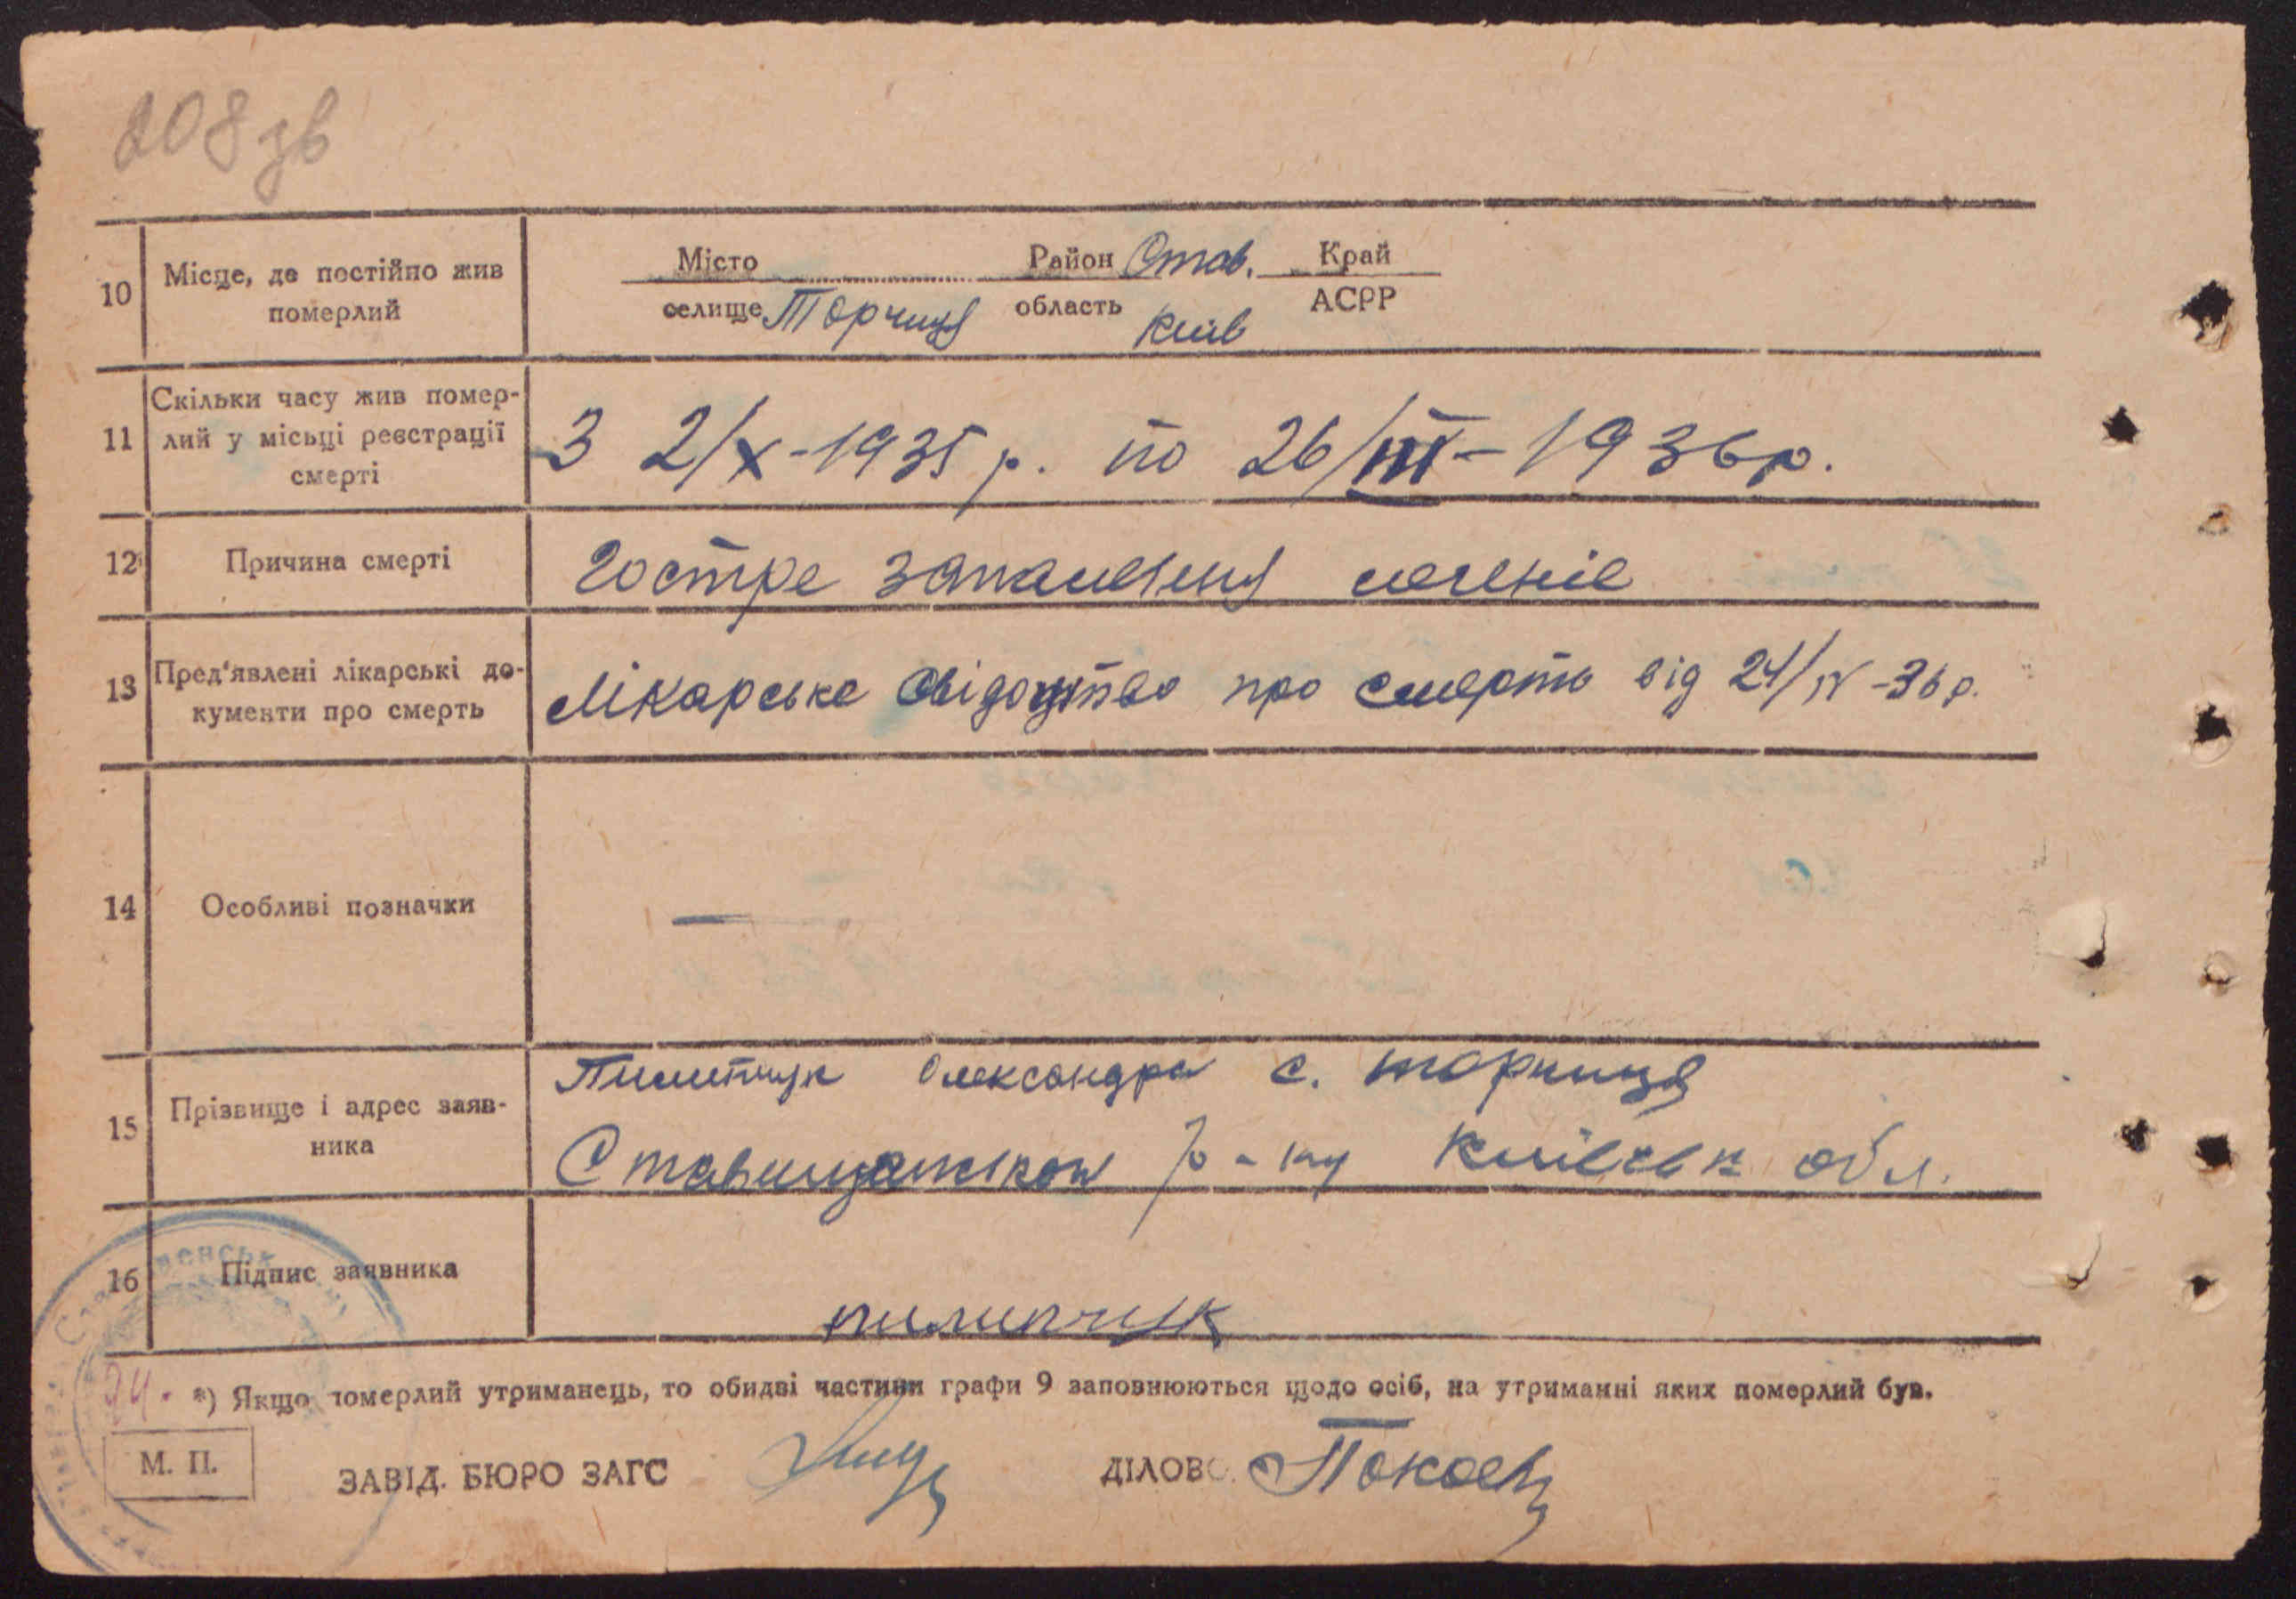 208 зв
10 Місце, де постійно жив померлий
Місто Район Став. Край
селище Торчиця область Київ АСРР
11 Скільки часу жив помер-
лий у місьці реєстрації
смерті
З 2/X-1935 р. по 26/III-1936 р.
12 Причина смерті
гостре запалення легеніе
13 Пред'явлені лікарські до-
кументи про смерть
Лікарське свідоцтво про смерть від 24/IV-36 р.
14 Особливі позначки
—
15 Прізвище і адрес заяв-
ника
Пилипчук Олександра с. торчиця
Ставищанськом р-ну Київськ обл.
16 Підпис заявника
пилипчук
24.
*) Якщо померлий утриманець, то обидві частини графи 9 заповнюються щодо осіб, на утриманні яких померлий був.
М. П.
ЗАВІД. БЮРО ЗАГС
ДІЛОВО.